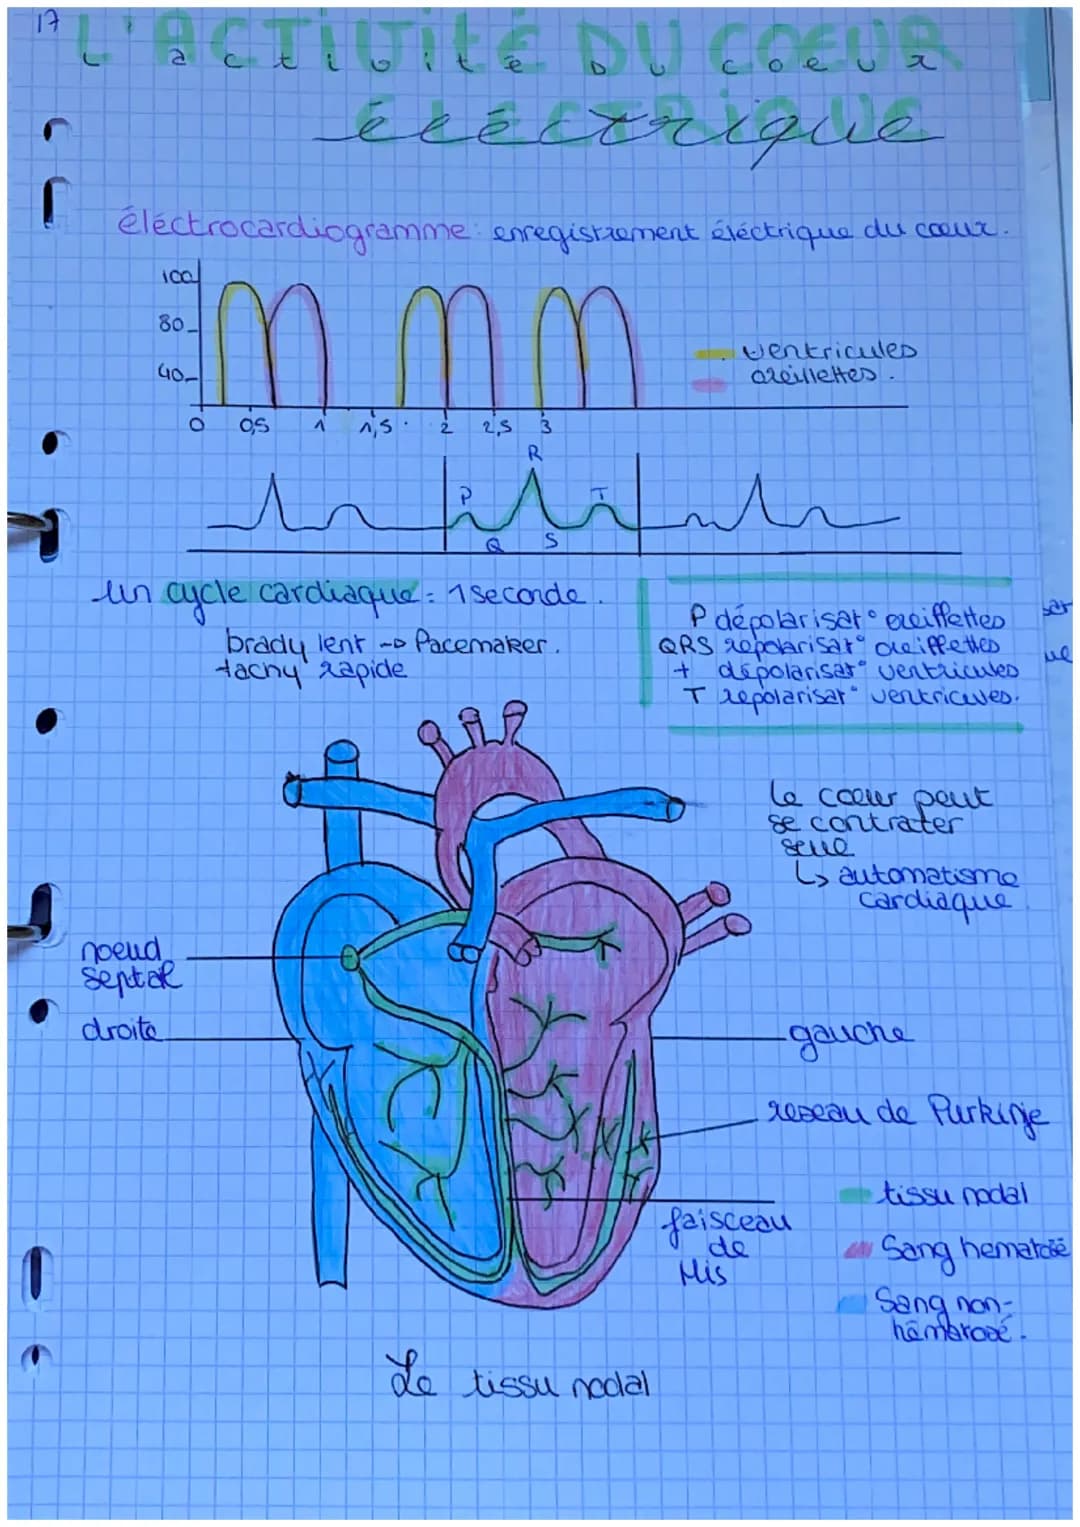 17
L'ACTIVITÉ DU COEUR
L'activité DU coeur
ÉLÉCTRIQUE
éléctrique
éléctrocardiogramme: enregistrement éléctrique du coeur.
100
80
40
ventricules
oreillettes.
0 0,5 1 1,5 2 2,5 3
R
P T
Q S
un cycle cardiaque = 1 seconde.
brady lent → Pacemaker.
tachy rapide
P dépolarisat° oreillettes
QRS repolarisat° oreillettes
+ dépolarisat° ventricules
T repolarisat° ventricules.
Le coeur peut
se contracter
seul
↳ automatisme
cardiaque
noeud
septal
droite
gauche
reseau de Purkinje
faisceau
de
His
tissu nodal
Sang hematosé
Sang non-
hématosé.
Le tissu nodal